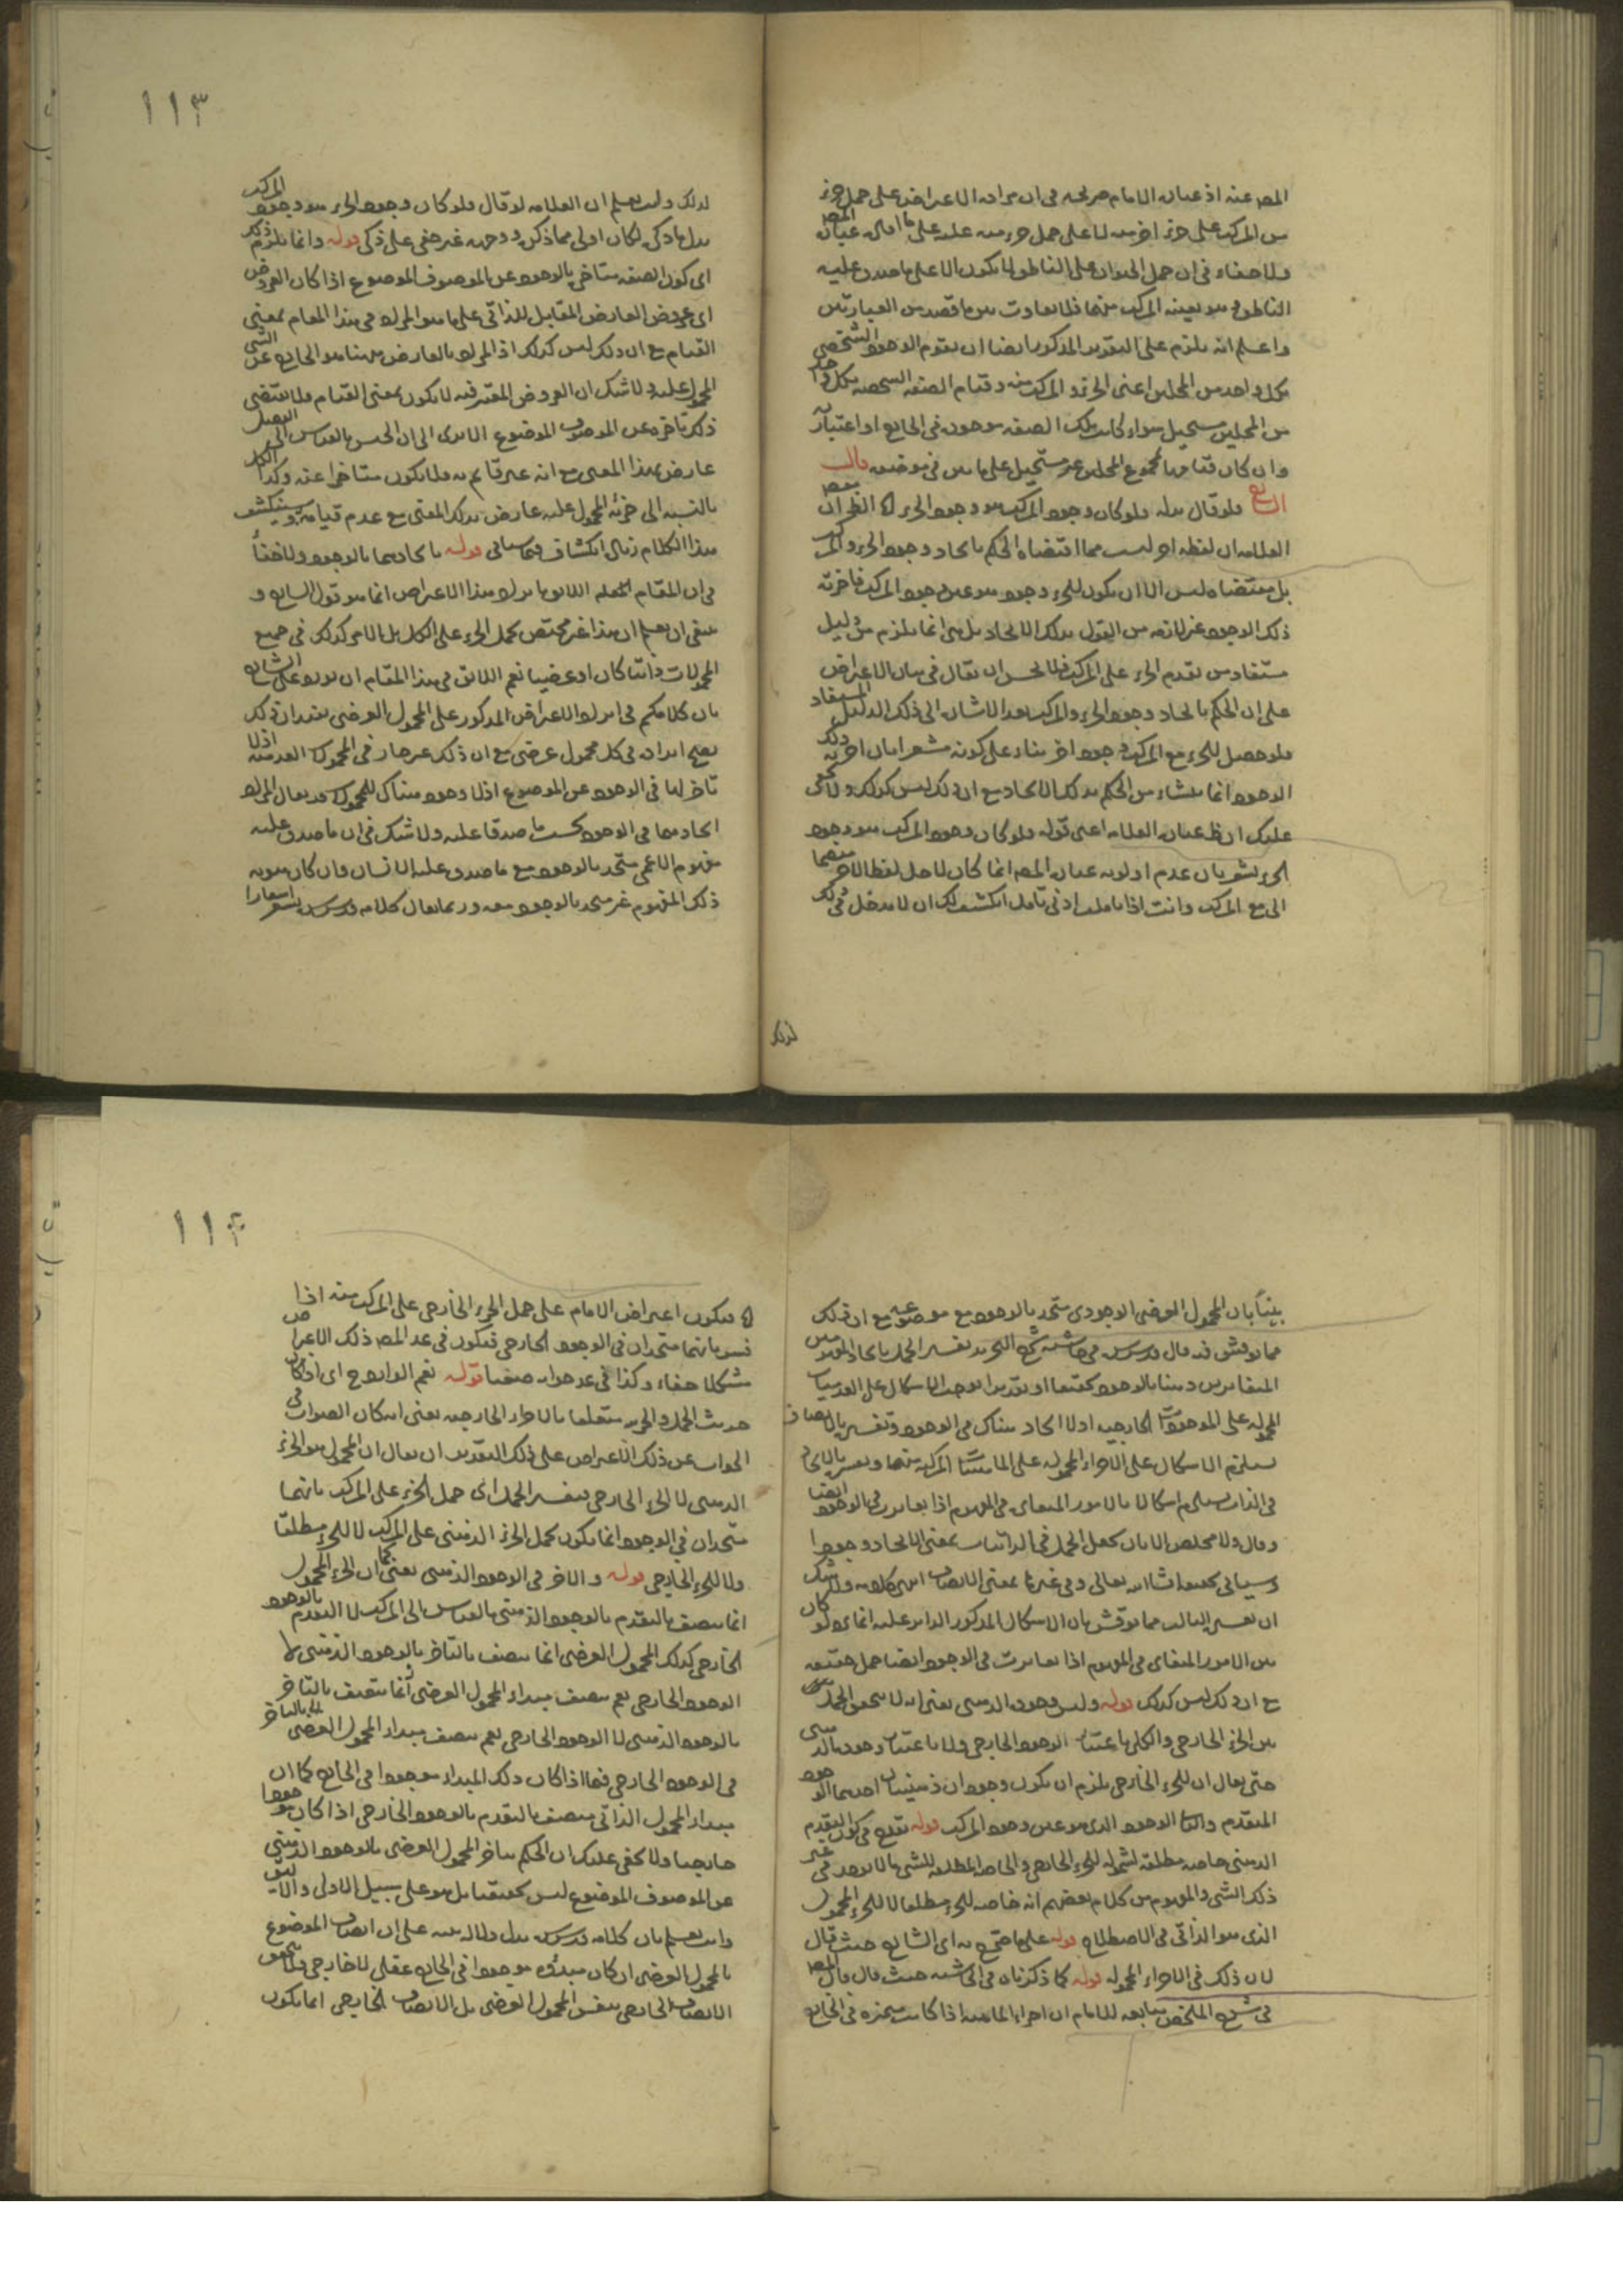 المص عنه اذ عبارة الامام صريحة فى ان مراده الاعتراض على حمل جزء
من المركب على جزء اخر منه لا على حمل جزء منه عليه على ما اوله عبارة المص
ولا خفاء فى ان حمل الحيوان على الناطق لا يكون الا على ما صدق عليه
الناطق وهو بعينه المركب منهما فلا تفاوت بين ما قصد من العبارتين
واعلم انه يلزم على التقدير المذكور ايضا ان يقوم الوجود الشخصى
بكل واحد من المحلين اعنى الجزء والمركب منه وقيام الصفة الشخصية بكل واحد
من المحلين مستحيل سواء كانت تلك الصفة موجودة فى الخارج او اعتبارية
وان كان قيامها بمجموع المحلين غير مستحيل على ما بين فى موضعه قال
الشارح فلو قال بدله فلو كان وجود المركب هو وجود الجزء الظ ان
العلامة ان لفظة اخر ليست مما اقتضاه الحكم باتحاد وجود الجزء والمركب
بل مقتضاه ليس الا ان يكون للجزء وجود هو عين وجود المركب فاخرية
ذلك الوجود غير لازمة من القول بذلك الاتحاد بل هى انما يلزم من دليل
مستفاد من تقدم الجزء على المركب فلا يحسن ان يقال فى بيان الاعتراض
على ان الحكم باتحاد وجود الجزء والمركب بعد الاشارة الى ذلك الدليل المستفاد
فلو حصل للجزء مع المركب وجود اخر بناء على كونه مشعرا بان اخرية ذلك
الوجود انما ينشاء من الحكم بذلك الاتحاد مع ان ذلك ليس كذلك ولا يخفى
عليك ان ظ عبارة العلامة اعنى قوله فلو كان وجود المركب هو وجود
الجزء يشعر بان عدم اولوية عبارة المص انما كان لاجل لفظ الاخر
الى مع المركب وانت اذا تاملت ادنى تامل انكشف لك ان لا مدخل فى ذلك
لذلك
١١٣
لذلك وانت تعلم ان العلامة لو قال فلو كان وجود الجزء هو وجود المركب
بدل ما ذكره لكان اولى مما ذكره ووجهه غير خفى على ذكى قوله وانما يلزم ذلك
اى كون الصفة متاخرة بالوجود عن الموصوف الموضوع اذا كان العروض
اى عروض العارض المقابل للذاتى على ما هو المراد فى هذا المقام بمعنى
القيام مع ان ذلك ليس كذلك اذ المراد بالعارض ههنا هو الخارج عن الشى
المحمول عليه ولا شك ان العروض المعتبر فيه لا يكون بمعنى القيام فلا يقتضى
ذلك تاخره عن الموصوف الموضوع الا يرى الى ان الجنس بالقياس الى الفصل
عارض بهذا المعنى مع انه غير قائم به فلا يكون متاخرا عنه وكذا الكل
بالنسبة الى جزئه المحمول عليه عارض بذلك المعنى مع عدم قيامه به وسينكشف
هذا الكلام زيادة انكشاف فيما سياتى قوله باتحادهما بالوجود ولا خفاء
ينبغى ان يعلم ان هذا غير مختص بحمل الجزء على الكل بل الامر كذلك فى جميع
المحمولات ذاتيا كان او عرضيا نعم اللائق فى هذا المقام ان يورد على الشارح
بان كلامكم فى ايراد الاعتراض المذكور على المحمول العرضى يفيد ان ذلك
يصح ايراده فى كل محمول عرضى مع ان ذلك غير جار فى المحمولات العدمية اذ لا
تاخر لها فى الوجود عن الموضوع اذ لا وجود هناك للمحمول وقد يقال المراد
اتحادهما فى الوجود بحسب ما صدقا عليه ولا شك فى ان ما صدق عليه
مفهوم الاعمى متحد بالوجود مع ما صدق عليه الانسان وان كان هوية
ذلك المفهوم غير متحد بالوجود معه وربما يقال كلامه قدس سره يشعر اشعارا
بينا بان المحمول العرضى الوجودى متحد بالوجود مع موضوعه مع ان ذلك
مما نوقش فيه قال قدس سره فى حاشية شرح التجريد تفسير الحمل باتحاد المفهومين
المتغايرين ذهنا بالوجود تحقيقا او تقديرا يوجب الاشكال على العدميات
المحمولة على الموجودات الخارجية اذ لا اتحاد هناك فى الوجود وتفسيره بالاتصاف
يستلزم الاشكال على الاجزاء المحمولة على الماهيات المركبة منها وتفسيره بالاتحاد
فى الذات يستلزم اشكالا بالامور المتغايرة فى المفهوم اذا تغايرت فى الوجود ايضا
وقال ولا مخلص الا بان يجعل الحمل فى الذاتيات بمعنى الاتحاد وجودا
وسياتى تحقيقه انشاء الله تعالى وفى غيرها بمعنى الاتصاف انتهى كلامه ولا شك
ان تفسير الثالث مما نوقش بان الاشكال المذكور الدائر عليه انما يرد لو كان
بين الامور المتغايرة فى المفهوم اذا تغايرت فى الوجود ايضا حمل حقيقة
مع ان ذلك ليس كذلك قوله وليس وجوده الذهنى يعنى انه لا يتحقق الحمل
بين الجزء الخارجى والكل لا باعتبار الوجود الخارجى ولا باعتبار وجوده الذهنى
حتى يقال ان للجزء الخارجى يلزم ان يكون وجودان ذهنيان احدهما الوجود
المتقدم والثانى الوجود الذى هو عين وجود المركب قوله يقدح فى كون التقدم
الذهنى خاصة مطلقة لشموله للجزء الخارجى والخاصة المطلقة للشى ما لا يوجد فى غير
ذلك الشى والمفهوم من كلام بعضهم انه خاصة للجزء مطلقا لا للجزء المحمول
الذى هو الذاتى فى الاصطلاح قوله على ما صرح به اى الشارح حيث قال
لان ذلك فى الاجزاء المحمولة قوله كما ذكرناه فى الحاشية حيث قال قال المص
فى شرح الملخص متابعة للامام ان اجزاء الماهية اذا كانت متميزة فى الخارج
١١٤
فيكون اعتراض الامام على حمل الجزء الخارجى على المركب منه اذا
فسر بانهما متحدان فى الوجود الخارجى فيكون فى عد المص ذلك الاعتراض
مشكلا خفاء وكذا فى عد جوابه صعبا قوله نعم لو اندرج اى اذا كان
حديث الحمل والجزئية متعلقا بالاجزاء الخارجية يعنى ان كان الصواب فى
الجواب عن ذلك الاعتراض على ذلك التقدير ان يقال ان المحمول هو الجزء
الذهنى لا الجزء الخارجى فيفسر الحمل اى حمل الجزء على المركب بانهما
متحدان فى الوجود انما يكون بحمل الجزء الذهنى على المركب لا للجزء مطلقا
ولا للجزء الخارجى قوله والاخر فى الوجود الذهنى يعنى كما ان الجزء المحمول
انما يتصف بالتقدم بالوجود الذهنى بالقياس الى المركب لا التقدم بالوجود
الخارجى كذلك المحمول العرضى انما يتصف بالتاخر بالوجود الذهنى لا
الوجود الخارجى نعم يتصف مبداء المحمول العرضى انما يتصف بالتاخر
بالوجود الذهنى لا الوجود الخارجى نعم يتصف مبداء المحمول العرضى بالتاخر
فى الوجود الخارجى فيما اذا كان ذلك المبداء موجودا فى الخارج كما ان
مبداء المحمول الذاتى يتصف بالتقدم بالوجود الخارجى اذا كان موجودا
خارجيا ولا يخفى عليك ان الحكم بتاخر المحمول العرضى بالوجود الذهنى
عن الموصوف الموضوع ليس تحقيقيا بل هو على سبيل الاولى والاليق
وانت تعلم بان كلامه قدس سره يدل دلالة بينة على ان اتصاف الموضوع
بالمحمول العرضى ان كان مبدؤه موجودا فى الخارج عقلى لا خارجى فلا يتحقق
الاتصاف الخارجى بنفس المحمول العرضى بل الاتصاف الخارجى انما يكون